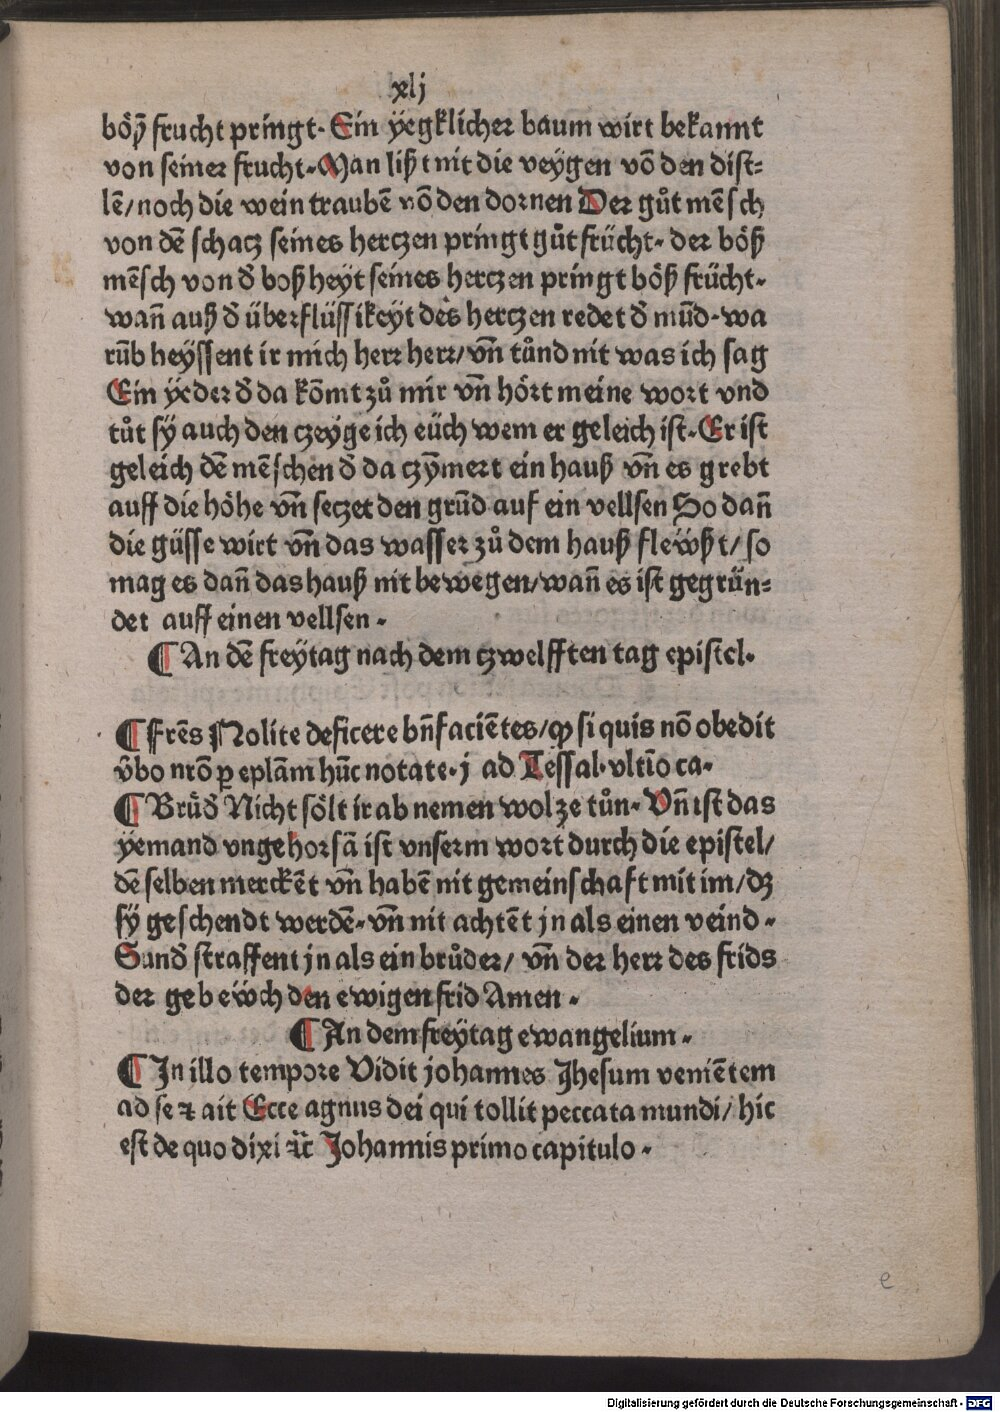 xlj
böß frucht pringt· Ein yegklicher baum wirt bekannt
von seiner frucht· Man lißt nit die veygen võ den dist⸗
lẽ/ noch die weintraubẽ võ den dornen Der gůt mẽsch
von dẽ schacz seines herczen pringt gůt frücht· der böß
mẽsch von d̕ boßheyt seines herczen pringt böß frücht·
wañ auß d̕ überflüssikeyt des herczen redet d̕ mũd· wa
rũb heyssent ir mich herr herr/ vñ tůnd nit was ich sag
Ein yeder d̕ da kõmt zů mir vñ hört meine wort vnd
tůt sy auch den czeyge ich eüch wem er geleich ist· Er ist
geleich dẽ mẽschen d̕ da czỹmert ein hauß vñ es grebt
auff die höhe vñ seczet den grũd auf ein vellsen So dañ
die güsse wirt vñ das wasser zů dem hauß flewßt/ so
mag es dañ das hauß nit bewegen/ wañ es ist gegrün⸗
det auff einen vellsen·
¶ An dẽ freytag nach dem czwelfften tag epistel·
¶ Frẽs Nolite deficere bñfaciẽtes/ ꝙ si quis nõ obedit
v̕bo nrõ ꝑ eplãm hũc notate· j ad Tessal· vltĩo ca·
¶ Brüd̕ Nicht sölt ir ab nemen wol ze tůn· Vñ ist das
yemand vngehorsã ist vnserm wort durch die epistel/
dẽ selben merckẽt vñ habẽ nit gemeinschaft mit im/ dz
sy geschendt werdẽ· vñ nit achtẽt jn als einen veind·
Sund̕ straffent jn als ein brůder/ vñ der herr des frids
der geb ewch den ewigen frid Amen·
¶ An dem freytag ewangelium·
¶ In illo tempore Vidit johannes Jhesum veniẽtem
ad se ⁊ ait Ecce agnus dei qui tollit peccata mundi/ hic
est de quo dixi ⁊c̃ Johannis primo capitulo·
e
Digitalisierung gefördert durch die Deutsche Forschungsgemeinschaft - DFG